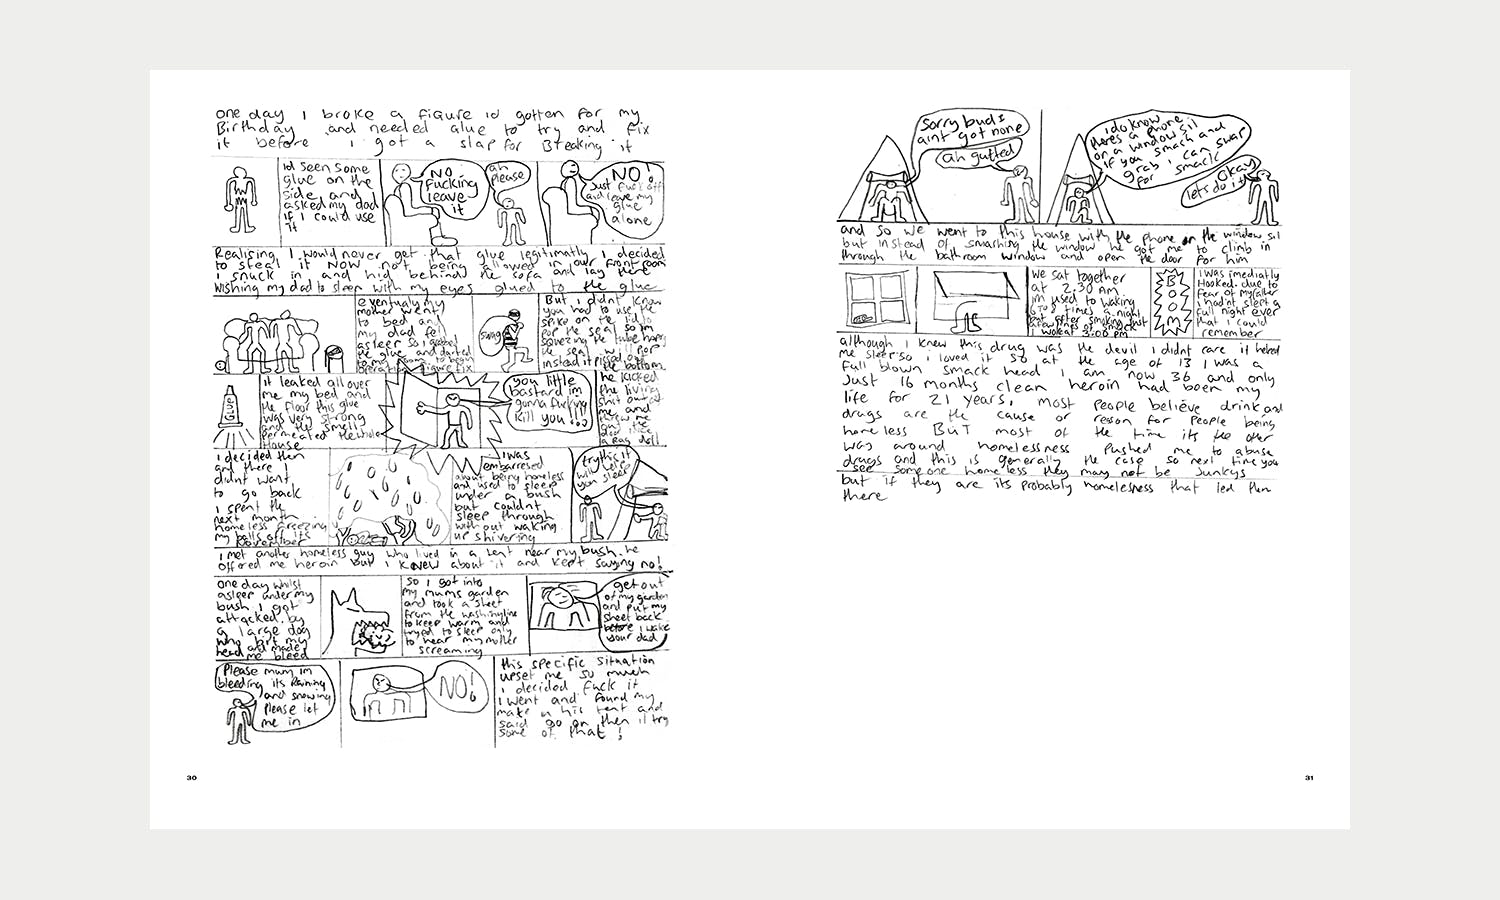 one day I broke a figure id gotten for my
Birthday and needed glue to try and fix
it before I got a slap for Breaking it
id seen some
glue on the
side and
asked my dad
if I could use
it
NO
fucking
leave
it
ah
please
NO!
Just fuck off
and leave my
glue
alone
Realising I would never get that glue legitimatly I decided
to steal it Now not being allowed in our front room
I snuck in and hid behind the sofa and lay there
wishing my dad to sleep with my eyes glued to the glue
eventualy my
mother went
to bed and
my dad fell
asleep so I grabbed
the glue and darted
to my room to begin
operation figure fix
swag
But I didnt know
you had to use the
spike on the lid to
pop the seal so im
sqeezing the tube hoping
the seal will pop
instead it pissed out
the bottom
GLUE
it leaked all over
me my bed and
the floor this glue
was very strong
and the smell
permeated the whole
House
you little
bastard im
gonna fucking
kill you!!!
he kicked
the living
shit out of
me and
threw me
out the
door like
a Rag doll
I decided then
and there I
didnt want
to go back
I spent the
next month
homeless freezing
my balls off its
November
I was
embarresed
about being homeless
and used to sleep
under a bush
but couldnt
sleep through
with out waking
up shivering
try this it
will help
you sleep
I met another homeless guy who lived in a tent near my bush. he
offered me heroin but I knew about it and kept saying no!
one day whilst
asleep under my
bush I got
attacked by
a large dog
who bit my
head and made
me bleed
so I got into
my mums garden
and took a sheet
from the washingline
to keep warm and
tryed to sleep only
to hear my mother
screaming
get out
of my garden
and put my
sheet back
before I wake
your dad
Please mum im
bleeding its Raining
and snowing
please let
me in
NO!
this specific situation
upset me so much
I decided fuck it
I went and found my
mate in his tent and
said go on then il try
some of that!
30
Sorry bud I
aint got none
ah gutted
I do know
theres a phone
on a window sil
if you smash and
grab I can swap
for smack
Okay
lets do it
and so we went to this house with the phone on the window sil
but instead of smashing the window he got me to climb in
through the bathroom window and open the door for him
we sat together
at 2.30 AM
im used to waking
6 to 8 times a night
but after smoking just
a few lines of smack
I woke at 3:00 pm
BOOM
I was imediatly
Hooked. due to
fear of my father
I hadnt slept a
full night ever
that I could
remember
although I knew this drug was the devil I didnt care it helped
me sleep so I loved it so at the age of 13 I was a
full blown smack head I am now 36 and only
Just 16 months clean heroin had been my
life for 21 years, most people believe drink and
drugs are the cause or reason for people being
homeless BUT most of the time its the other
way around homelessness pushed me to abuse
drugs and this is generally the case so next time you
see someone homeless they may not be Junkys
but if they are its probably homelesness that led them
there
31